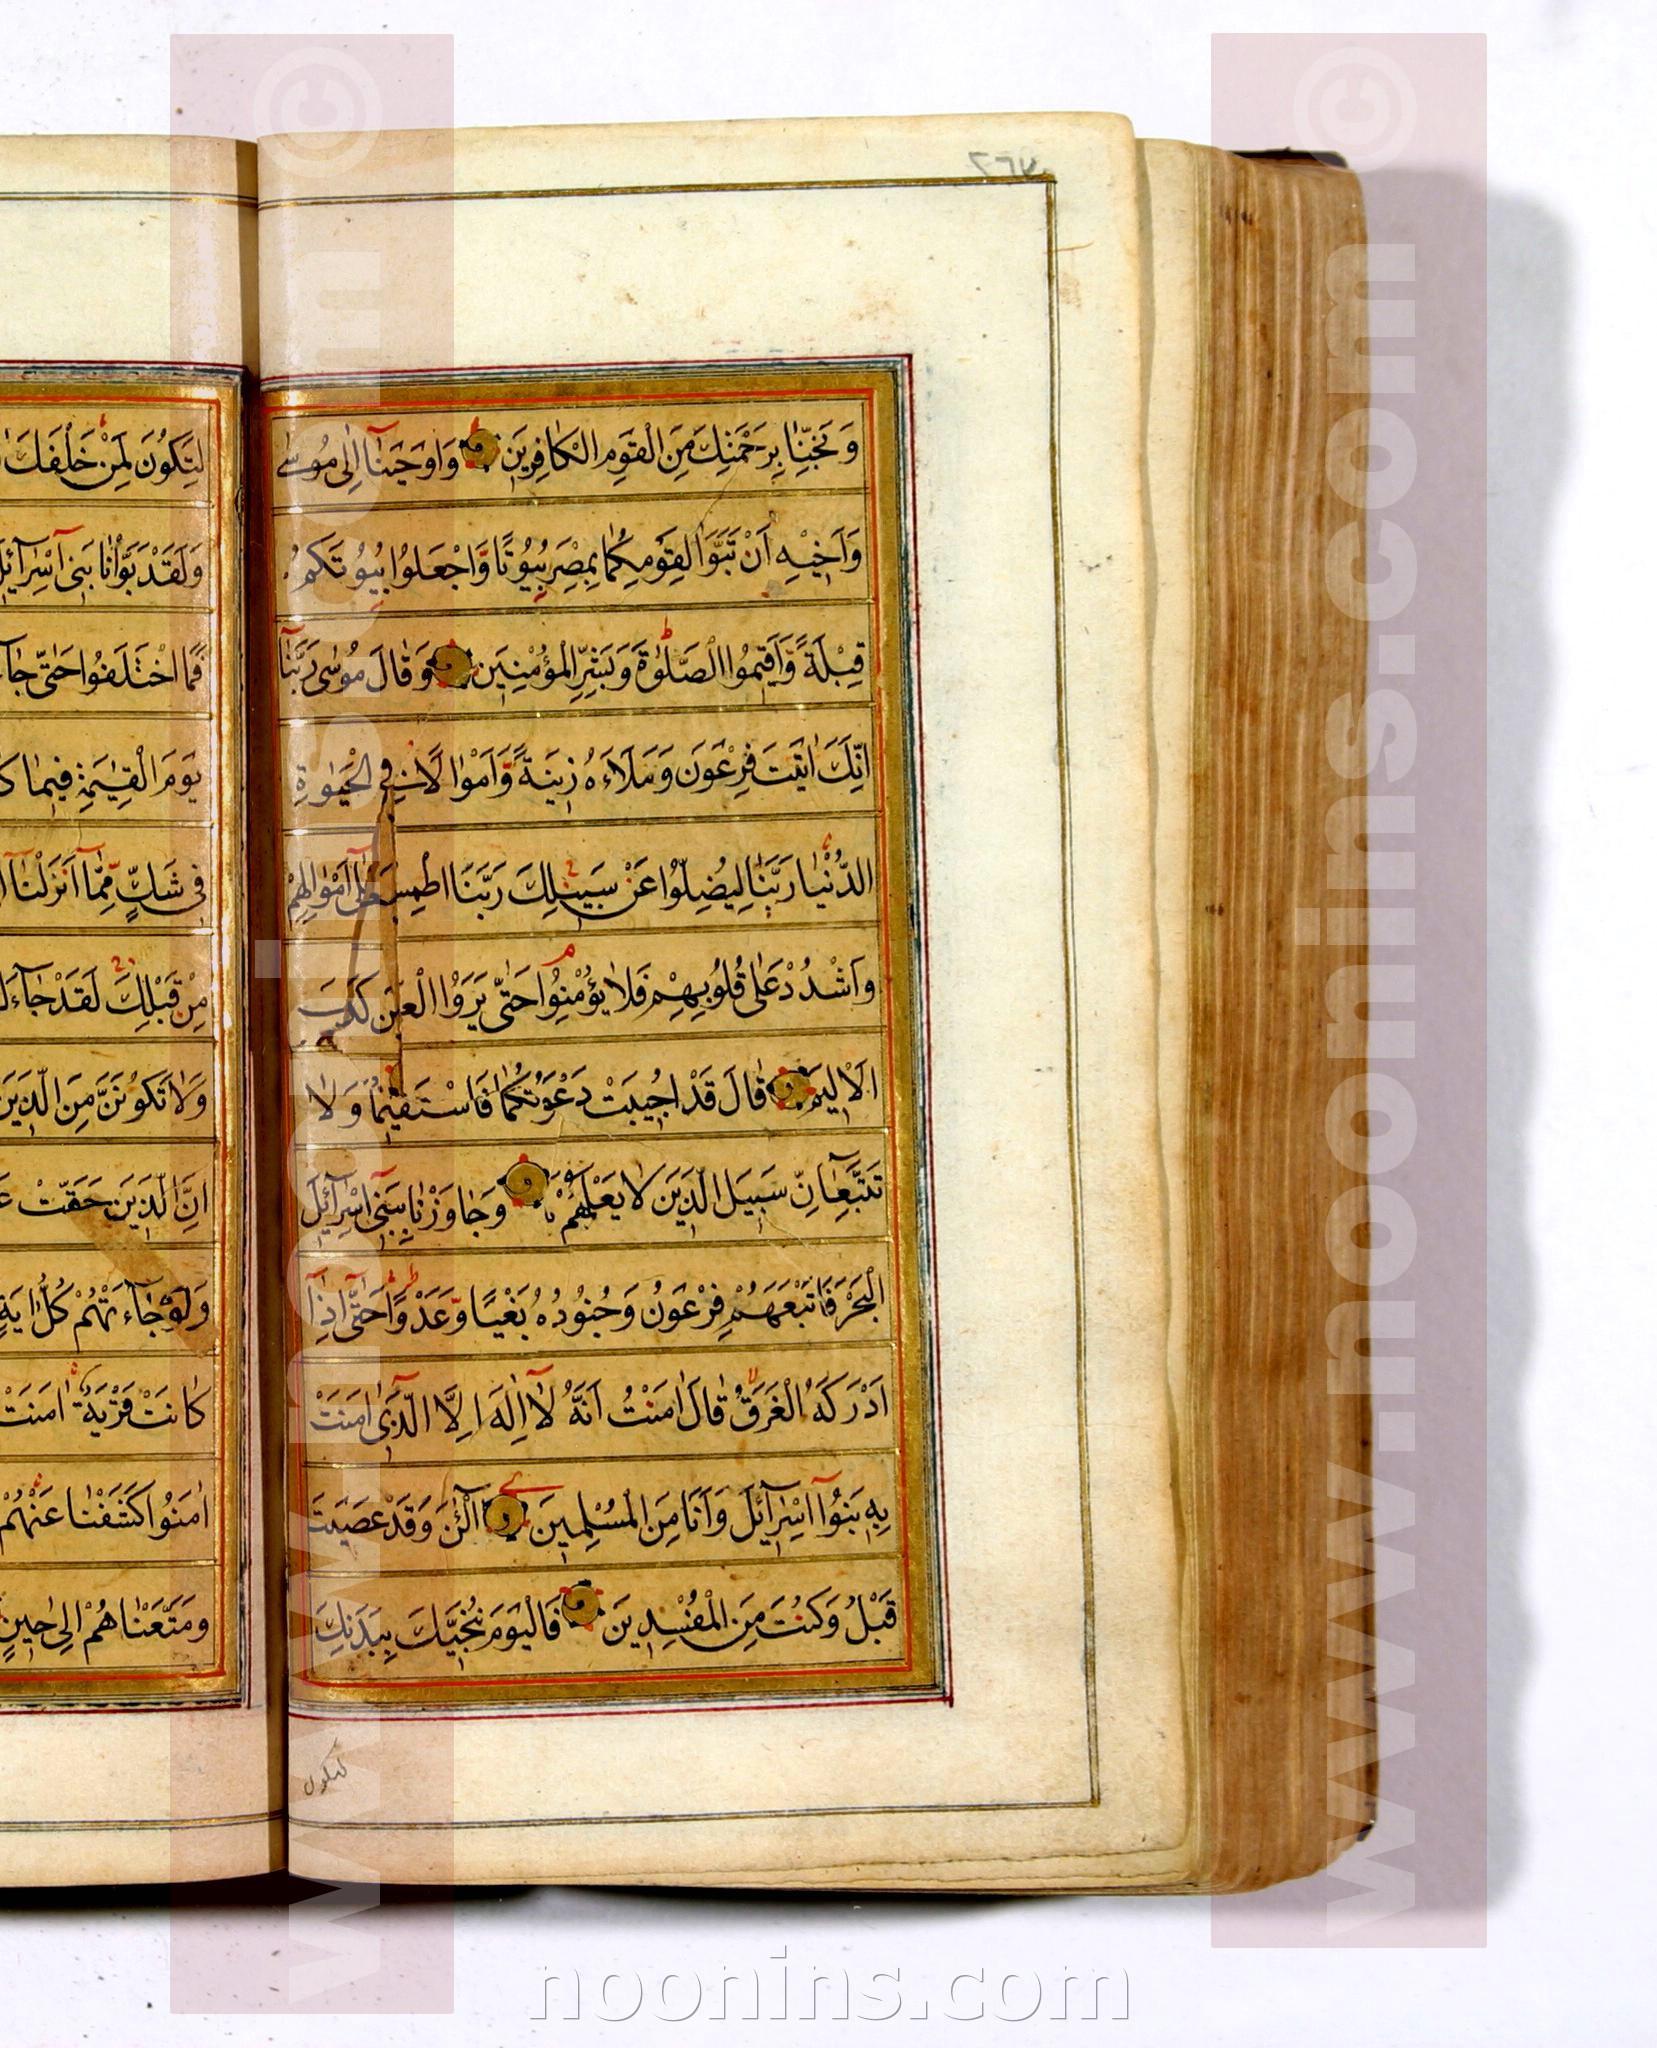 ٢٦٧
وَنَجِّنَا بِرَحْمَتِكَ مِنَ الْقَوْمِ الْكَافِرِينَ وَاَوْحَيْنَآ اِلٰى مُوسٰى
وَاَخِيْهِ اَنْ تَبَوَّاٰ لِقَوْمِكُمَا بِمِصْرَ بُيُوْتًا وَّاجْعَلُوْا بُيُوْتَكُمْ
قِبْلَةً وَّاَقِيْمُوا الصَّلٰوةَ وَبَشِّرِ الْمُؤْمِنِيْنَ وَقَالَ مُوْسٰى رَبَّنَآ
اِنَّكَ اٰتَيْتَ فِرْعَوْنَ وَمَلَاَهُ زِيْنَةً وَّاَمْوَالًا فِي الْحَيٰوةِ
الدُّنْيَا رَبَّنَا لِيُضِلُّوْا عَنْ سَبِيْلِكَ رَبَّنَا اطْمِسْ عَلٰٓى اَمْوَالِهِمْ
وَاشْدُدْ عَلٰى قُلُوْبِهِمْ فَلَا يُؤْمِنُوْا حَتّٰى يَرَوُا الْعَذَابَ
الْاَلِيْمَ قَالَ قَدْ اُجِيْبَتْ دَعْوَتُكُمَا فَاسْتَقِيْمَا وَلَا
تَتَّبِعَآنِّ سَبِيْلَ الَّذِيْنَ لَا يَعْلَمُوْنَ وَجَاوَزْنَا بِبَنِيْٓ اِسْرَآئِيْلَ
الْبَحْرَ فَاَتْبَعَهُمْ فِرْعَوْنُ وَجُنُوْدُهُ بَغْيًا وَّعَدْوًا حَتّٰٓى اِذَآ
اَدْرَكَهُ الْغَرَقُ قَالَ اٰمَنْتُ اَنَّهُ لَآ اِلٰهَ اِلَّا الَّذِيْٓ اٰمَنَتْ
بِهِ بَنُوْٓا اِسْرَآئِيْلَ وَاَنَا مِنَ الْمُسْلِمِيْنَ آٰلْئٰنَ وَقَدْ عَصَيْتَ
قَبْلُ وَكُنْتَ مِنَ الْمُفْسِدِيْنَ فَالْيَوْمَ نُنَجِّيْكَ بِبَدَنِكَ
لتكون
لِتَكُوْنَ لِمَنْ خَلْفَكَ
وَلَقَدْ بَوَّاْنَا بَنِيْٓ اِسْرَآئِيْلَ
فَمَا اخْتَلَفُوْا حَتّٰى جَآءَ
يَوْمَ الْقِيٰمَةِ فِيْمَا
فِيْ شَكٍّ مِّمَّآ اَنْزَلْنَآ
مِنْ قَبْلِكَ لَقَدْ جَآءَكَ
وَلَا تَكُوْنَنَّ مِنَ الَّذِيْنَ
اِنَّ الَّذِيْنَ حَقَّتْ
وَلَوْ جَآءَتْهُمْ كُلُّ اٰيَةٍ
كَانَتْ قَرْيَةٌ اٰمَنَتْ
اٰمَنُوْا كَشَفْنَا عَنْهُمْ
وَمَتَّعْنَاهُمْ اِلٰى حِيْنٍ
© www.noonins.com
© www.noonins.com
noonins.com